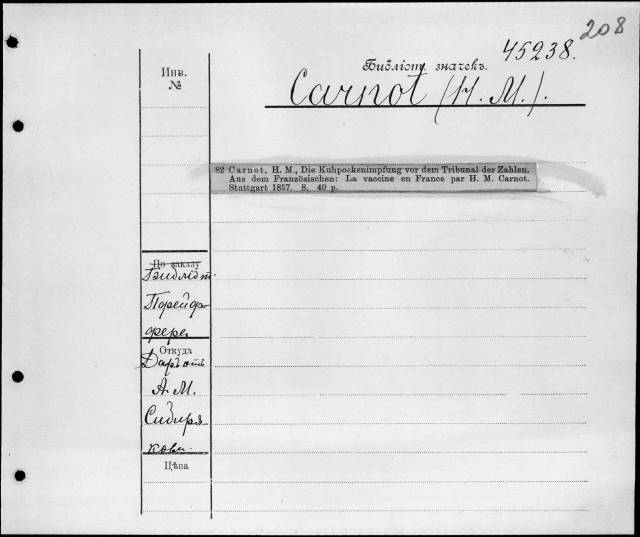 208
45238.
Библіот. значекъ.
Инв.
№
Carnot (H. M.).
82 Carnot, H. M., Die Kuhpockenimpfung vor dem Tribunal der Zahlen.
Aus dem Französischen: La vaccine en France par H. M. Carnot.
Stuttgart 1857. 8. 40 p.
По заказу
Библіот.
Откуда
Даръ отъ
А. М.
Сибиря
кова.
Цѣна